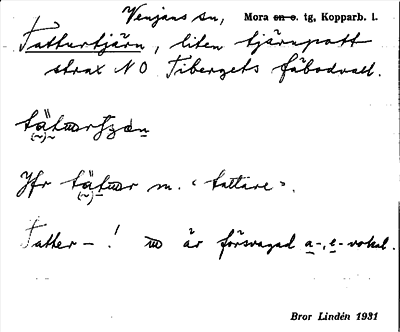 Venjans sn, Mora en o. tg, Kopparb. l.
Tatturtjärn, liten tjärnputt
strax NO Tibergets fäbodvall.
Jfr m. "tattare".
Tatter- ! är försvagad a-, e-vokal.
Bror Lindén 1931